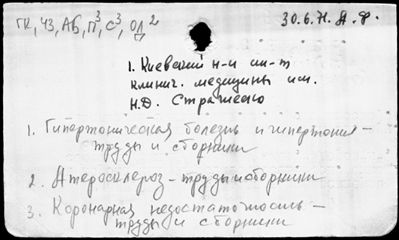 ГК, ЧЗ, АБ, П³, С³, ОД² 30.6.71. Я. Ф.
1. Киевский н-и ин-т
клинич. медицины им.
Н.Д. Стражеско
1. Гипертоническая болезнь и гипертония –
труды и сборники
2. Атеросклероз – труды и сборники
3. Коронарная недостаточность –
труды и сборники